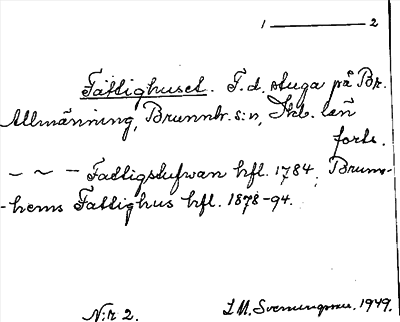 1 ——— 2
Fattighuset. F.d. stuga på Br.
Allmänning, Brunnbr. s:n, Skb. län
forts.
~ ~ - Fattigstufwan hfl. 1784, Brunns-
-hems Fattighus hfl. 1878-94.
N:r 2. I.M. Svennungsson. 1949.